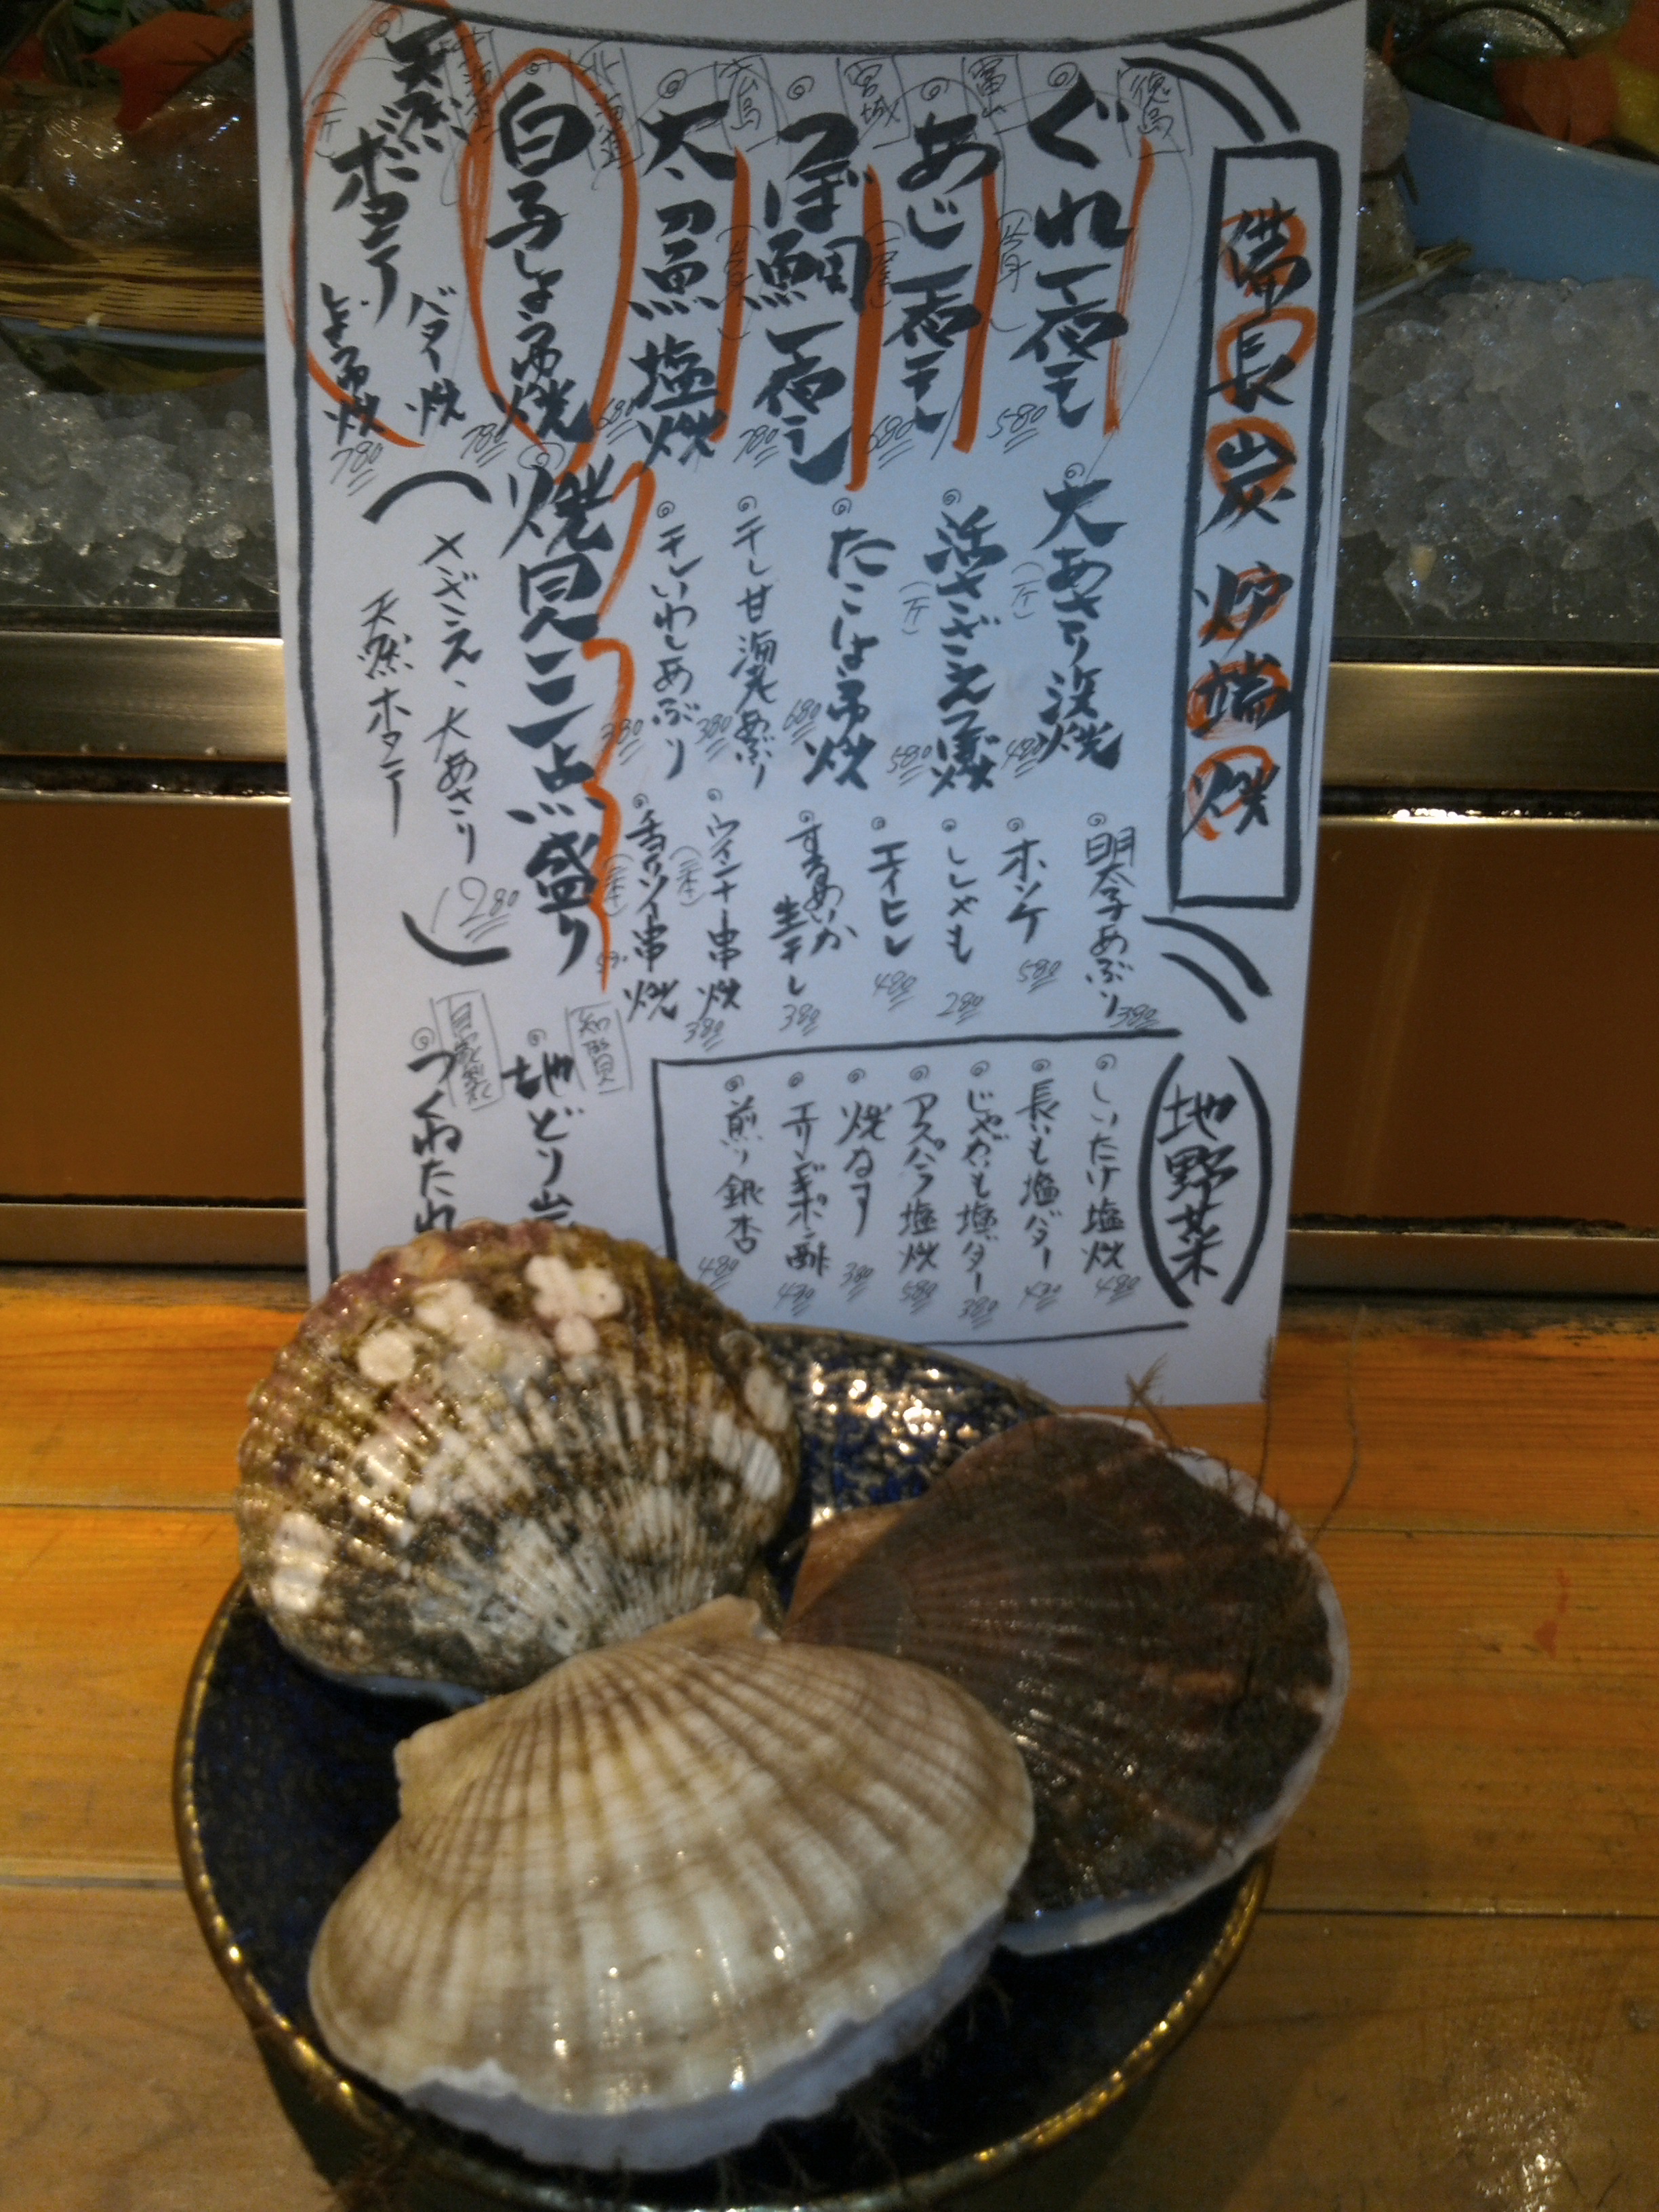 備長炭炉端焼
徳島
ぐれ一夜干し
580
富山
あじ一夜干し
680
宮城
つぼ鯛一夜干し
780
太刀魚塩焼
680
北海道
白子しょう油焼
780
天然ホタテ
バター焼
しょう油焼
780
大あさり浜焼
480
活さざえつぼ焼
580
たこしょう油焼
680
干し甘海老あぶり
380
干しいわしあぶり
380
焼貝三点盛り
さざえ、大あさり
天然ホタテ
1280
明太子あぶり
380
ホッケ
580
ししゃも
280
エイヒレ
480
するめいか
生干し
380
ウインナー串焼
380
(地野菜)
しいたけ塩焼
480
長いも塩バター
480
じゃがいも塩バター
380
アスパラ塩焼
580
焼なす
380
エリンギポン酢
480
煎り銀杏
480
地どり
自家製
つくねたれ